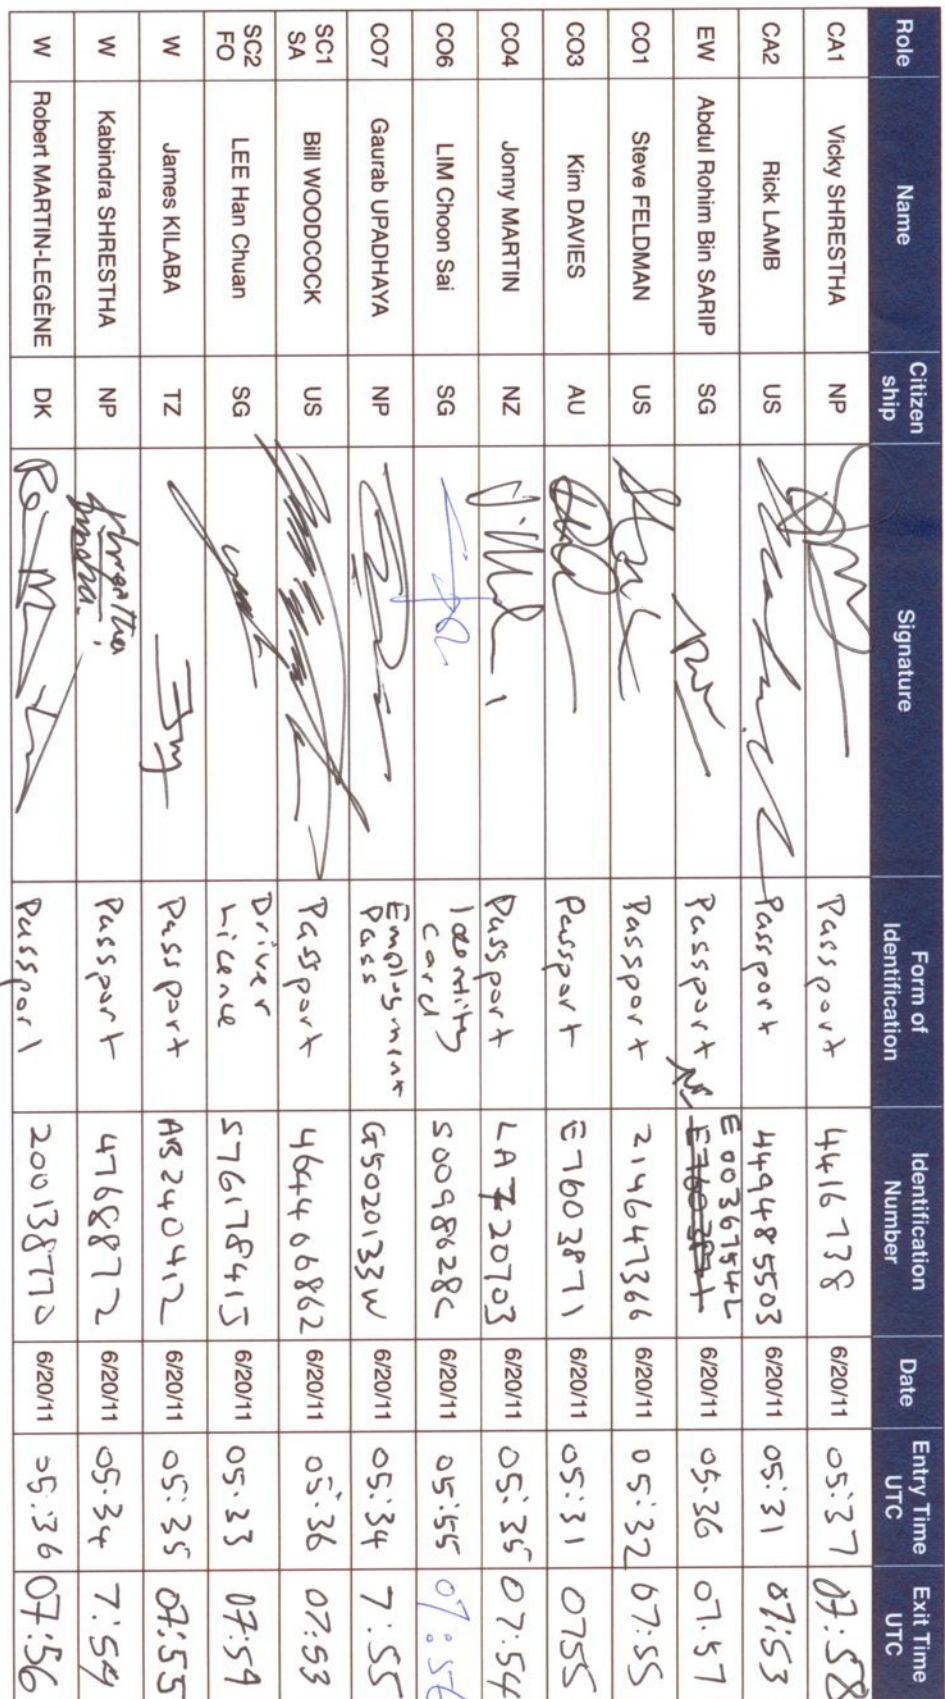 Role Name Citizen ship Signature Form of Identification Identification Number Date Entry Time UTC Exit Time UTC
CA1 Vicky SHRESTHA NP Passport 4416738 6/20/11 05:37 07:58
CA2 Rick LAMB US Passport 4494485503 6/20/11 05:31 07:53
EW Abdul Rohim Bin SARIP SG Passport E0036754L 6/20/11 05:36 07:57
CO1 Steve FELDMAN US Passport 214647366 6/20/11 05:32 07:55
CO3 Kim DAVIES AU Passport E7603871 6/20/11 05:31 0755
CO4 Jonny MARTIN NZ Passport LA720703 6/20/11 05:35 07:54
CO6 LIM Choon Sai SG Identity Card S0098628C 6/20/11 05:55 07:56
CO7 Gaurab UPADHAYA NP Employment Pass G5020133W 6/20/11 05:34 7:55
SC1 SA Bill WOODCOCK US Passport 464466862 6/20/11 05:36 07:53
SC2 FO LEE Han Chuan SG Driver Licence S7617841J 6/20/11 05:33 07:54
W James KILABA TZ Passport AB240412 6/20/11 05:35 07:55
W Kabindra SHRESTHA NP Passport 4768872 6/20/11 05:34 7:54
W Robert MARTIN-LEGÈNE DK Passport 200138770 6/20/11 05:36 07:56